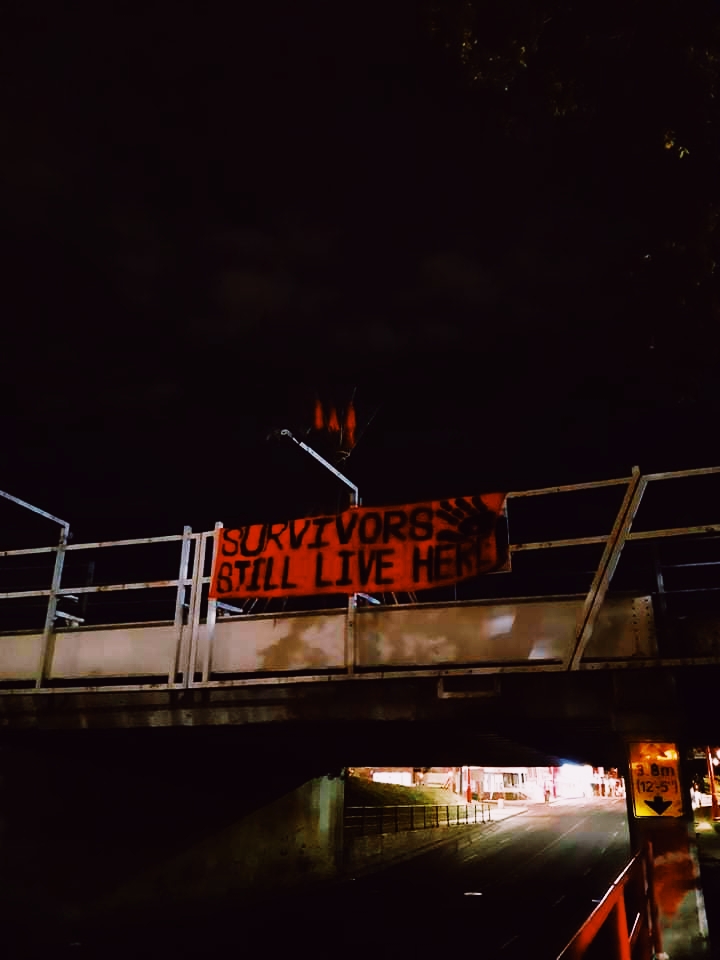 SURVIVORS
STILL LIVE HERE
3.8m
(12'-5")